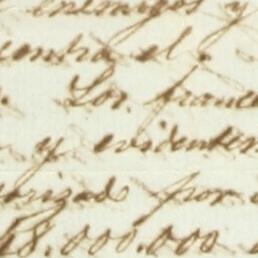 enemigos y
contra el.
Los france
y evidentem
orizad por
8.000.000